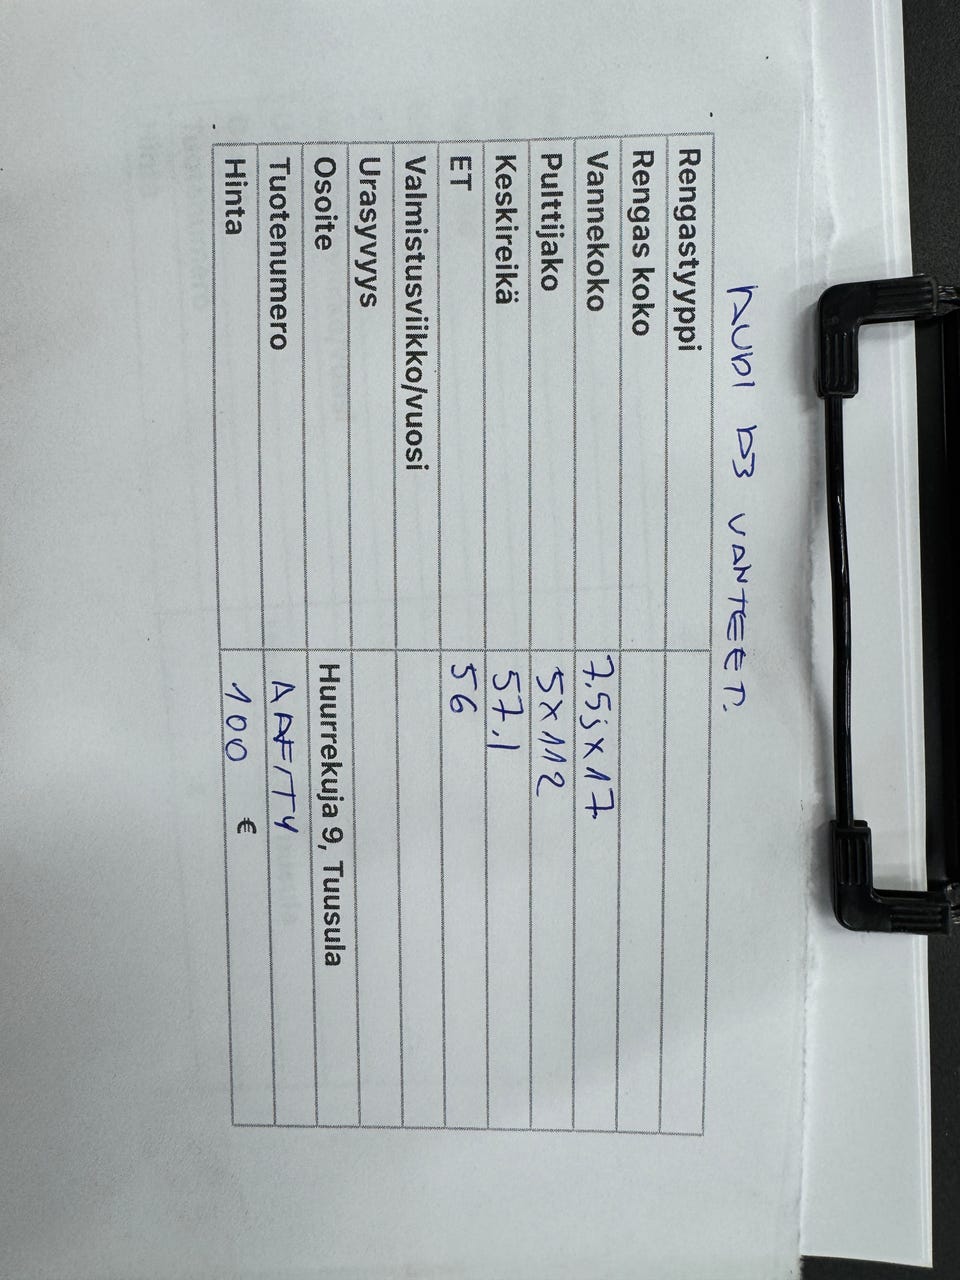 AUDI A3 VANTEET.
Rengastyyppi
Rengas koko
Vannekoko 7,5j x 17
Pulttijako 5x112
Keskireikä 57,1
ET 56
Valmistusviikko/vuosi
Urasyvyys
Osoite Huurrekuja 9, Tuusula
Tuotenumero
Hinta 100 €